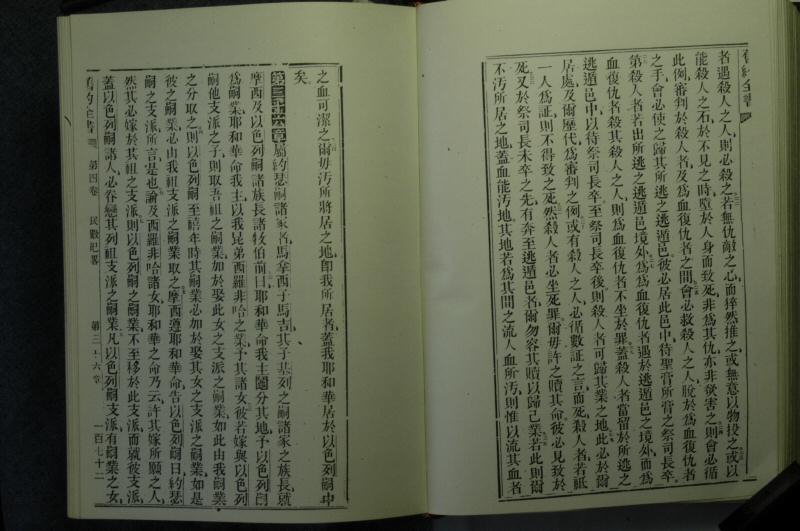 舊約全書
者遇殺人之人則必殺之若無仇敵之心而猝然推之或無意以物投之或以
能殺人之石於不見之時墜於人身而致死非爲其仇亦非欲害之則會必循
此例審判於殺人者及爲血復仇者之間會必救殺人之人脫於爲血復仇者
之手會必使之歸其所逃之逃遁邑彼必居此邑中待聖膏所膏之祭司長卒
第殺人者若出所逃之逃遁邑境外爲爲血復仇者遇於逃遁邑之境外而爲
血復仇者殺其殺人之人則爲血復仇者不坐於罪蓋殺人者當留於所逃之
逃遁邑中以待祭司長卒至祭司長卒後則殺人者可歸其業之地此必於爾
居處及爾歷代爲審判之例或有殺人之人必循數証之言而死殺人者若祗
一人爲証則不得致之死然殺人者必坐死罪爾毋許之贖其命彼必見致於
死又於祭司長未卒之先有奔至逃遁邑者爾勿容其贖以歸己業若此則爾
不汚所居之地蓋血能汚地其地若爲其間之流人血所汚則惟以流其血者
之血可潔之爾毋汚所將居之地卽我所居者蓋我耶和華居於以色列嗣中
矣
第三十六章屬約瑟嗣諸家者馬拿西子馬吉其子基列之嗣諸家之族長就
摩西及以色列嗣諸族長諸牧伯前曰耶和華命我主鬮分其地予以色列嗣
爲嗣業耶和華命我主以我昆弟西羅非哈之業予其諸女彼若嫁與以色列
嗣他支派之子則取吾祖之嗣業加於娶此女之支派之嗣業如此由我嗣業
之分取之則以色列嗣至禧年時其嗣業必加於娶其女之支派之嗣業如是
彼之嗣業必由我祖支派之嗣業取之摩西遵耶和華命告以色列嗣曰約瑟
嗣之支派所言是也論及西羅非哈諸女耶和華之命乃云許其嫁所願之人
然其必嫁於其祖之支派則以色列嗣之嗣業不至移於此支派而就彼支派
蓋以色列嗣諸人必眷戀其列祖支派之嗣業凡以色列嗣支派有嗣業之女
舊約全書 第四卷 民數紀畧 第三十六章 一百七十二